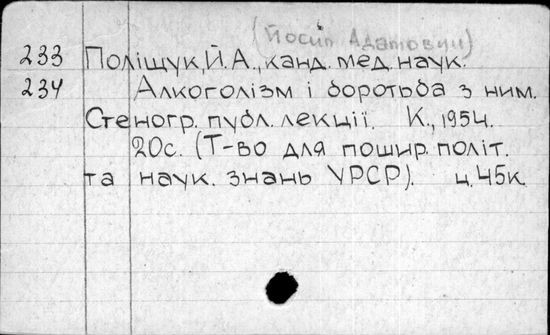 (Йосип Адамович)
233 Поліщук, Й. А., канд. мед. наук.
234 Алкоголізм і боротьба з ним.
Стеногр. публ. лекції. К., 1954.
20с. (Т-во для пошир. політ.
та наук. знань УРСР). ц. 45к.